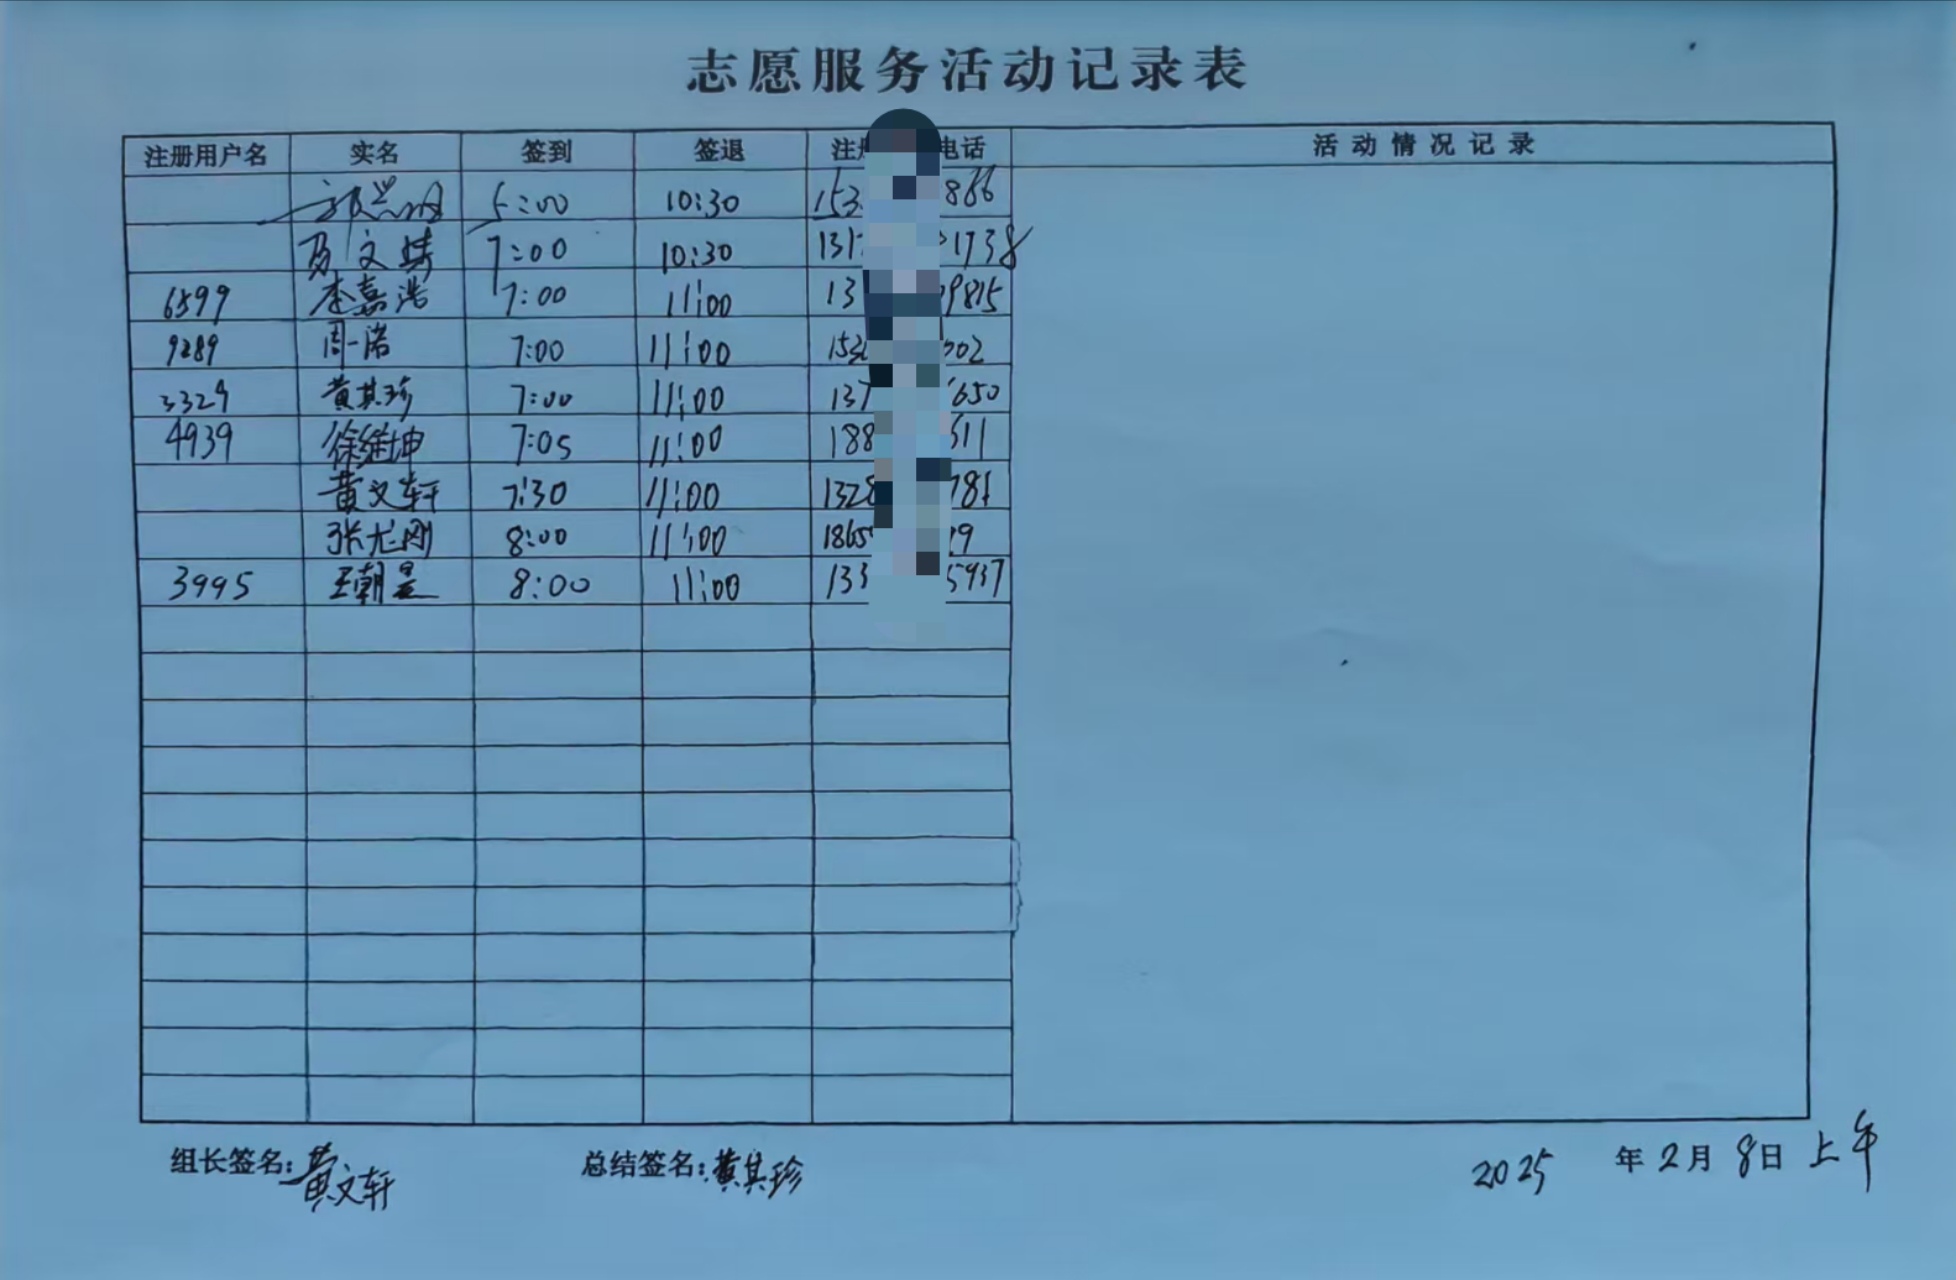 志愿服务活动记录表
注册用户名 实名 签到 签退 注册 电话 活动情况记录
5:00 10:30 153 866
文 7:00 10:30 131 1738
6599 李嘉浩 7:00 11:00 13 9815
9289 周一诺 7:00 11:00 153 602
3329 黄其珍 7:00 11:00 137 650
4939 徐继坤 7:05 11:00 188 511
黄文轩 7:30 11:00 1328 781
张尤刚 8:00 11:00 1865 19
3995 王朝昱 8:00 11:00 133 5937
组长签名:黄文轩 总结签名:黄其珍 2025年2月8日上午